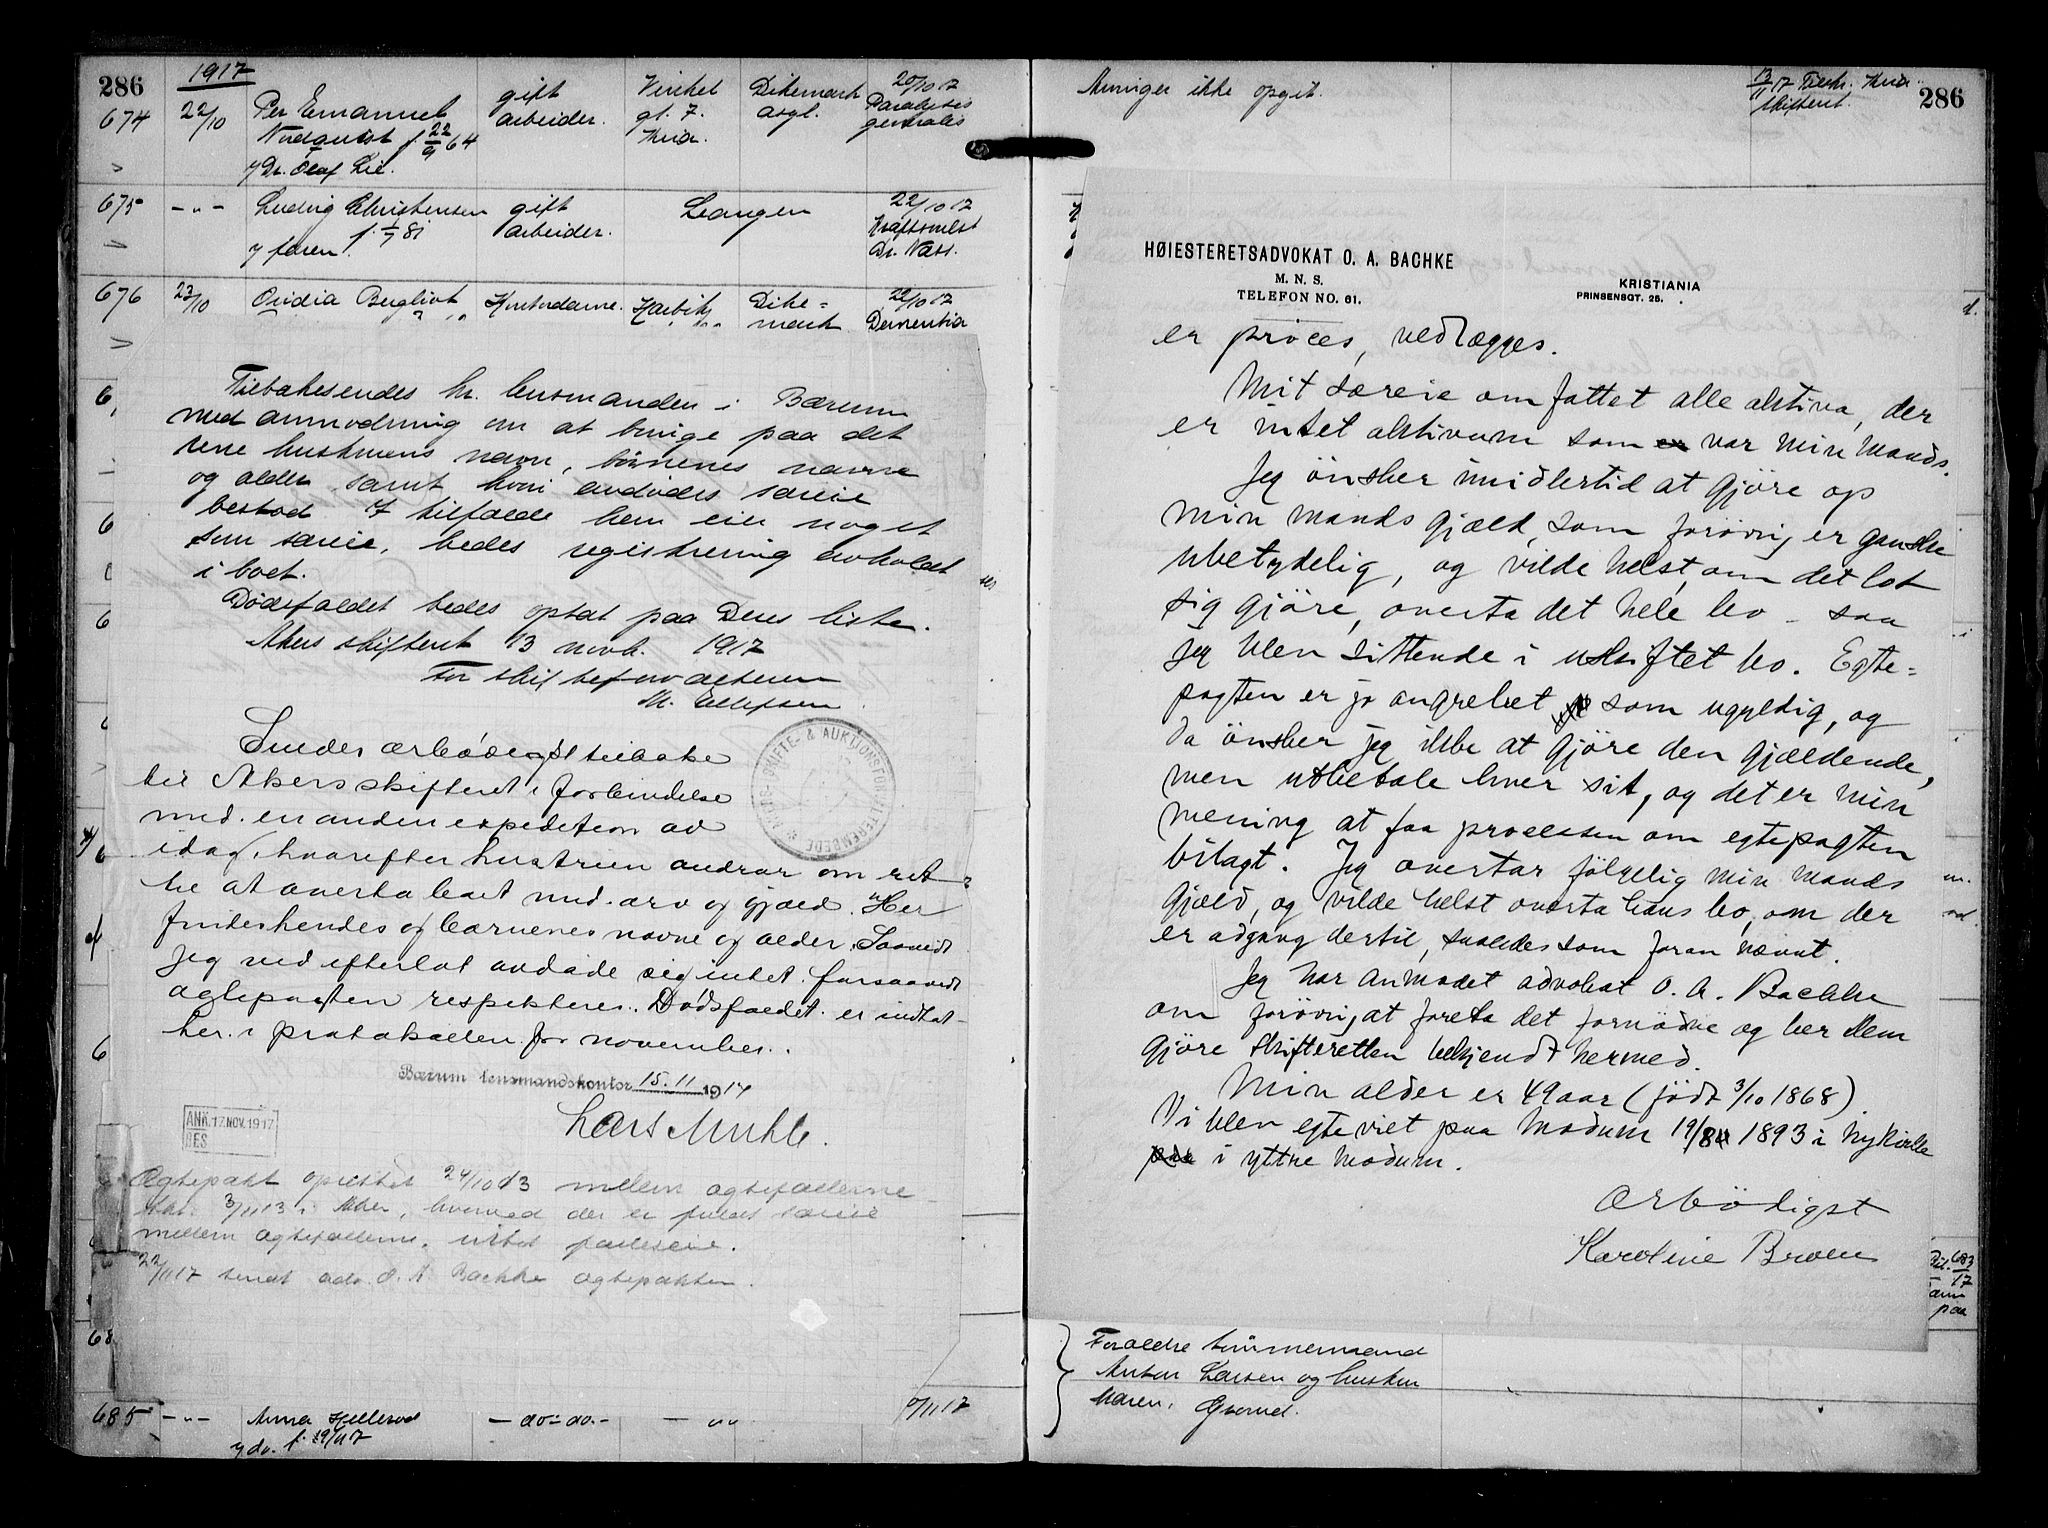 286
1917
674 22/10 Per Emanuel gift Vinkel Dikemark 20/10 17
Nordquist f. 22/9 64 arbeider. gt. 7. asyl. Paralysis
y Dr. Olaf Lie. Kria. generalis
675 -"- Ludvig Christensen gift Leangen 22/10 17
f. 1/7 81 arbeider. Kræftsvulst
y faren. Dr. Næss.
676 23/10 Ovidia Kria. Dike= 22/10 17
mark Dementia
Tilbakesendes hr. lensmanden i Bærum
med anmodning om at bringe paa det
rene hustruens navn, børnenes navne
og alder samt hvori avdødes særeie
bestod. I tilfælde hun eier noget
som særeie, bedes registrering avholdt
i boet.
Dødsfaldet bedes optat paa Deres liste.
Akers skifteret 13 novb. 1917
For skifteforvalteren
M. Ellefsen
Sendes ærbødigst tilbake
til Akers skifteret i forbindelse
med en anden expedition av
idag, hvorefter hustruen andrar om ret=
te at overta boet med arv og gjæld. Her
findes hendes og barnenes navne og alder. Saavidt
jeg ved efterlot avdøde sig intet forsaavidt
ægtepagten respekteres. Dødsfaldet er indtat
her i protokollen for november.
Bærum lensmandskontor 15.11 1917
Lars Muhle.
ANK. 17. NOV. 1917
BES
SKIFTE- & AUKTIONSFORVALTEREMBEDE
Ægtepakt oprettet 24/10 13 mellem ægtefællerne
3/11 13 i Aker, hvorved der er fuldt særeie
mellem ægtefællerne, intet fælleseie.
22/11 17 sendt adv. O. A. Bachke ægtepakten.
685 -"- Anna Hillerød - do - do. - - "" /11 17
y do. f. 19/11 17
Arvinger ikke opgit.
13/11 17 Kria
skifteret.
286
HØIESTERETSADVOKAT O. A. BACHKE
M. N. S.
TELEFON NO. 61.
KRISTIANIA
PRINSENSGT. 25.
er proces, vedlægges.
Mit særeie omfattet alle aktiva, der
er intet aktivum som er var min mands.
Jeg ønsker imidlertid at gjøre op
min mands gjæld, som forøvrig er ganske
ubetydelig, og vilde helst, om det lot
sig gjøre, overta det hele bo - saa
jeg blev sittende i uskiftet bo. Egte=
pagten er jo angrebet som ugyldig, og
da ønsker jeg ikke at gjøre den gjældende,
men utbetale hver sit, og det er min
mening at faa processen om egtepagten
bilagt. Jeg overtar følgelig min mands
gjæld, og vilde helst overta hans bo, om der
er adgang dertil, saaledes som foran nævnt.
Jeg har anmodet advokat O. A. Bachke
om forøvrig at foreta det fornødne og ber Dem
gjøre skifteretten bekjendt hermed.
Min alder er 49 aar (født 3/10 1868)
Vi blev egteviet paa Modum 19/8 1893 i Nykirke
paa i ytre Modum.
Ærbødigst
Karoline Broen
683
17
paa
Forældre tømmermand
Anton Larsen og hustru
Maren,